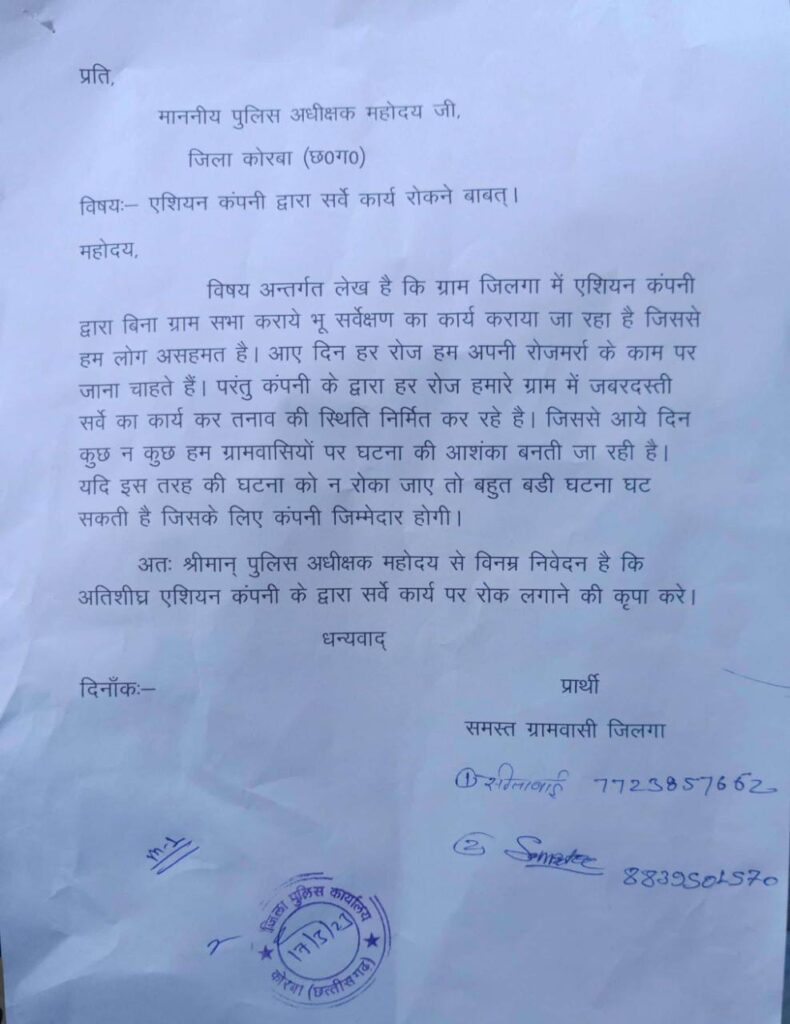 प्रति,
माननीय पुलिस अधीक्षक महोदय जी,
जिला कोरबा (छ0ग0)
विषयः– एशियन कंपनी द्वारा सर्वे कार्य रोकने बाबत्।
महोदय,
विषय अन्तर्गत लेख है कि ग्राम जिलगा में एशियन कंपनी
द्वारा बिना ग्राम सभा कराये भू सर्वेक्षण का कार्य कराया जा रहा है जिससे
हम लोग असहमत है। आए दिन हर रोज हम अपनी रोजमर्रा के काम पर
जाना चाहते हैं। परंतु कंपनी के द्वारा हर रोज हमारे ग्राम में जबरदस्ती
सर्वे का कार्य कर तनाव की स्थिति निर्मित कर रहे है। जिससे आये दिन
कुछ न कुछ हम ग्रामवासियों पर घटना की आशंका बनती जा रही है।
यदि इस तरह की घटना को न रोका जाए तो बहुत बडी घटना घट
सकती है जिसके लिए कंपनी जिम्मेदार होगी।
अतः श्रीमान् पुलिस अधीक्षक महोदय से विनम्र निवेदन है कि
अतिशीघ्र एशियन कंपनी के द्वारा सर्वे कार्य पर रोक लगाने की कृपा करे।
धन्यवाद्
दिनाँकः–
प्रार्थी
समस्त ग्रामवासी जिलगा
① 7723857662
②
8839501570
जिला पुलिस कार्यालय
कोरबा (छत्तीसगढ़)